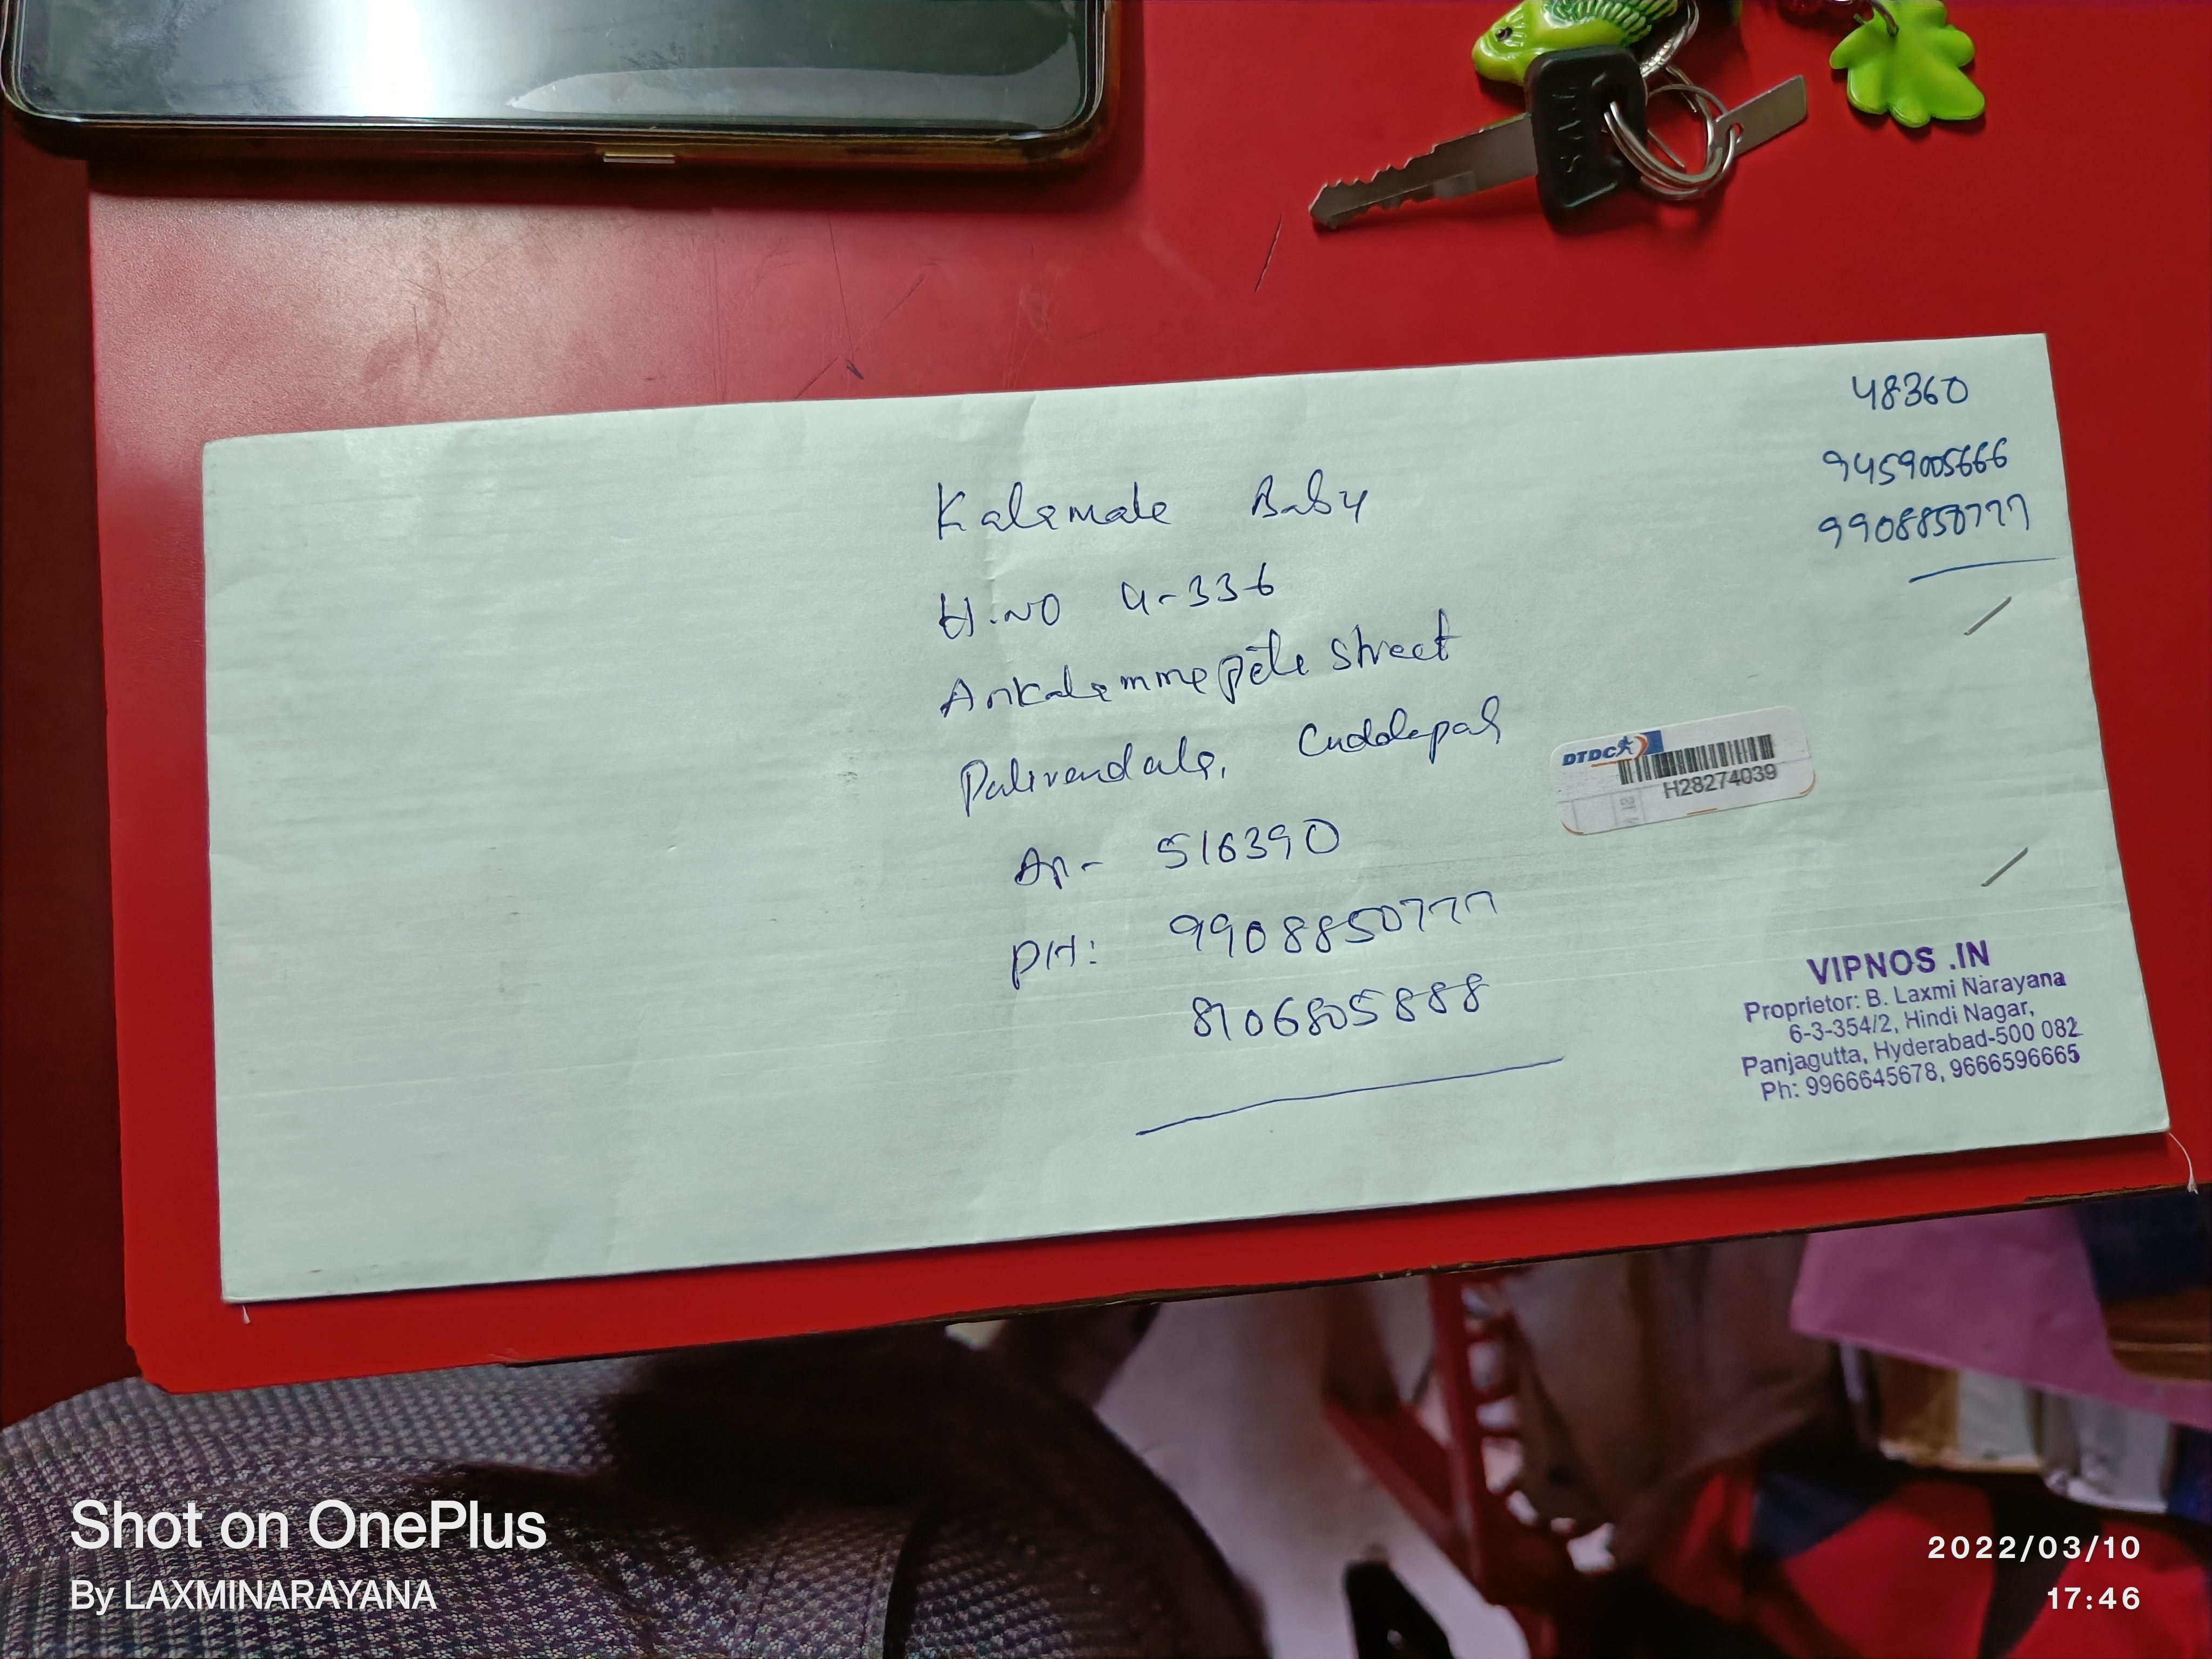 48360
9459005666
9908850777
Kalamala Baby
H.NO 4-336
Ankalammapeta street
Pulivendula, Cuddapah
AP- 516390
PH: 9908850777
8106805888
DTDC
H28274039
VIPNOS .IN
Proprietor: B. Laxmi Narayana
6-3-354/2, Hindi Nagar,
Panjagutta, Hyderabad-500 082
Ph: 9966645678, 9666596665
Shot on OnePlus
By LAXMINARAYANA
2022/03/10
17:46